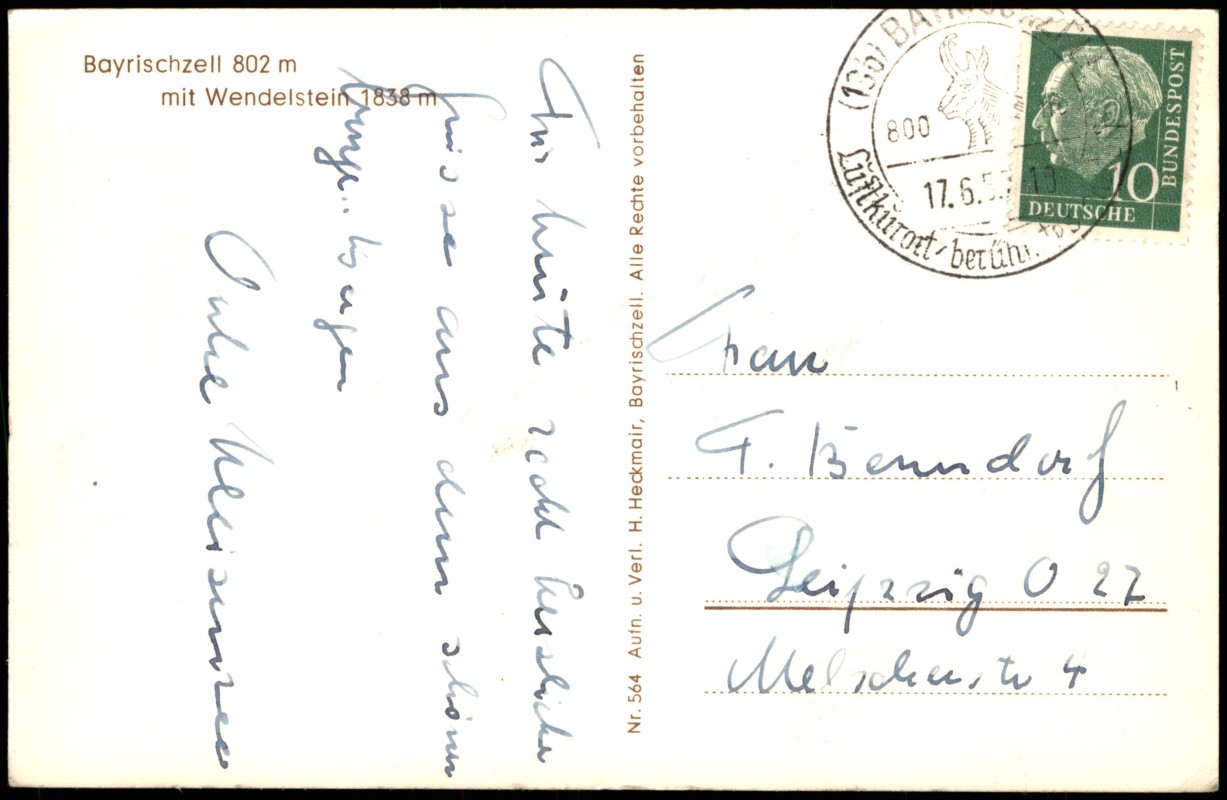 Bayrischzell 802 m
mit Wendelstein 1838 m
Für heute recht herzliche
Grüsse aus dem schönen
Ihre
Nr. 564 Aufn. u. Verl. H. Heckmair, Bayrischzell. Alle Rechte vorbehalten
(13b) BAYRISCHZELL
800
17.6.5
10
Luftkurort, berühr
DEUTSCHE
BUNDESPOST
10
Frau
F. Benndorf
Leipzig O 27
Melscherstr 4